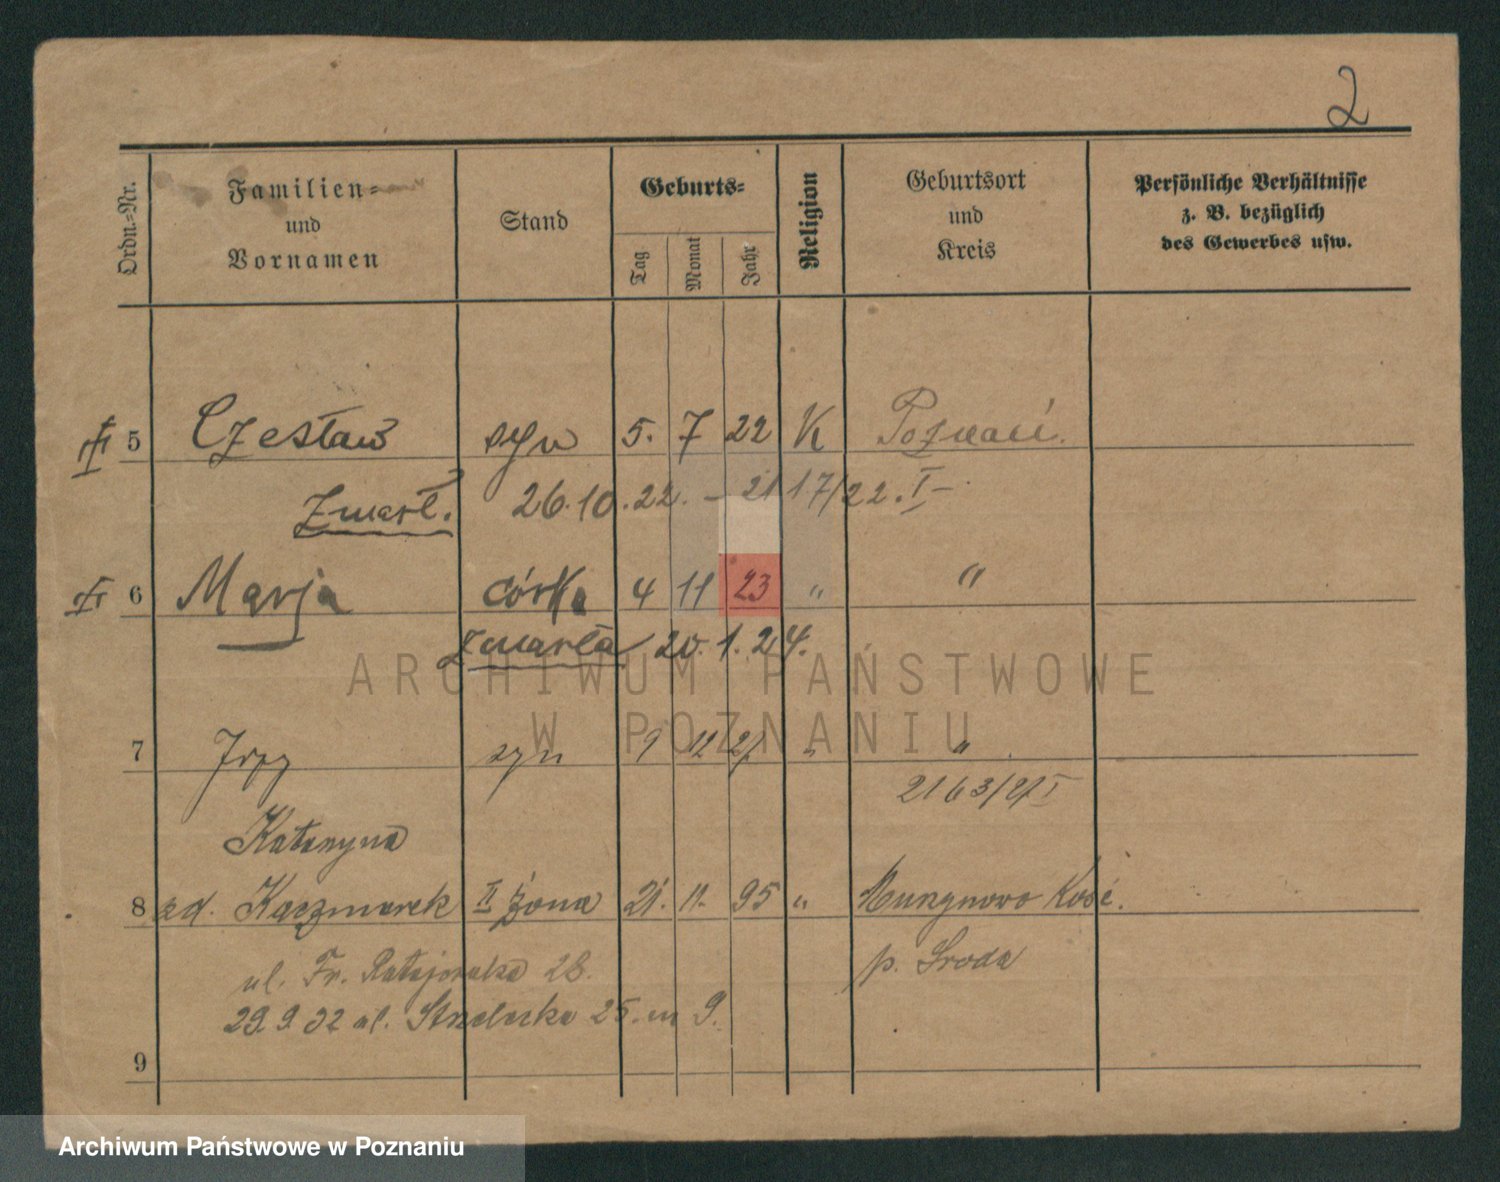 2
Ordn.-Nr.
Familien-
und
Vornamen
Stand
Geburts-
Tag
Monat
Jahr
Religion
Geburtsort
und
Kreis
Persönliche Verhältnisse
z. B. bezüglich
des Gewerbes usw.
5 Czesław syn 5. 7 22 K Poznań.
Zmarł. 26.10.22. - 2117/22. I -
6 Marja córka 4 11 23 " "
Zmarła 20.1.24.
ARCHIWUM PAŃSTWOWE
W POZNANIU
7 Jerzy syn 9 12 27 " "
2163/27 I
Katarzyna
8 zd. Kaczmarek II żona 21. 11. 95 " Murzynowo Kość.
ul. Fr. Ratajczaka 28. p. Środa
29.9.32 ul. Strzelecka 25. m 9.
9
Archiwum Państwowe w Poznaniu